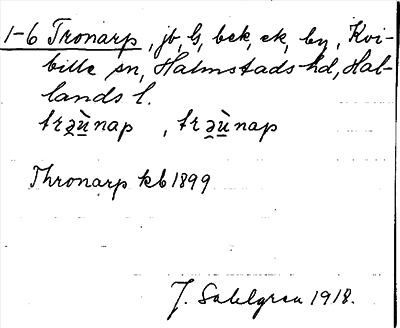 1-6 Tronarp, jb, ls, bek, ek, by, Kvi-
bille sn, Halmstads hd, Hal-
lands l.
trə̯ùnap, trə̯ùnap
Thronarp kb 1899
J. Sahlgren 1918.